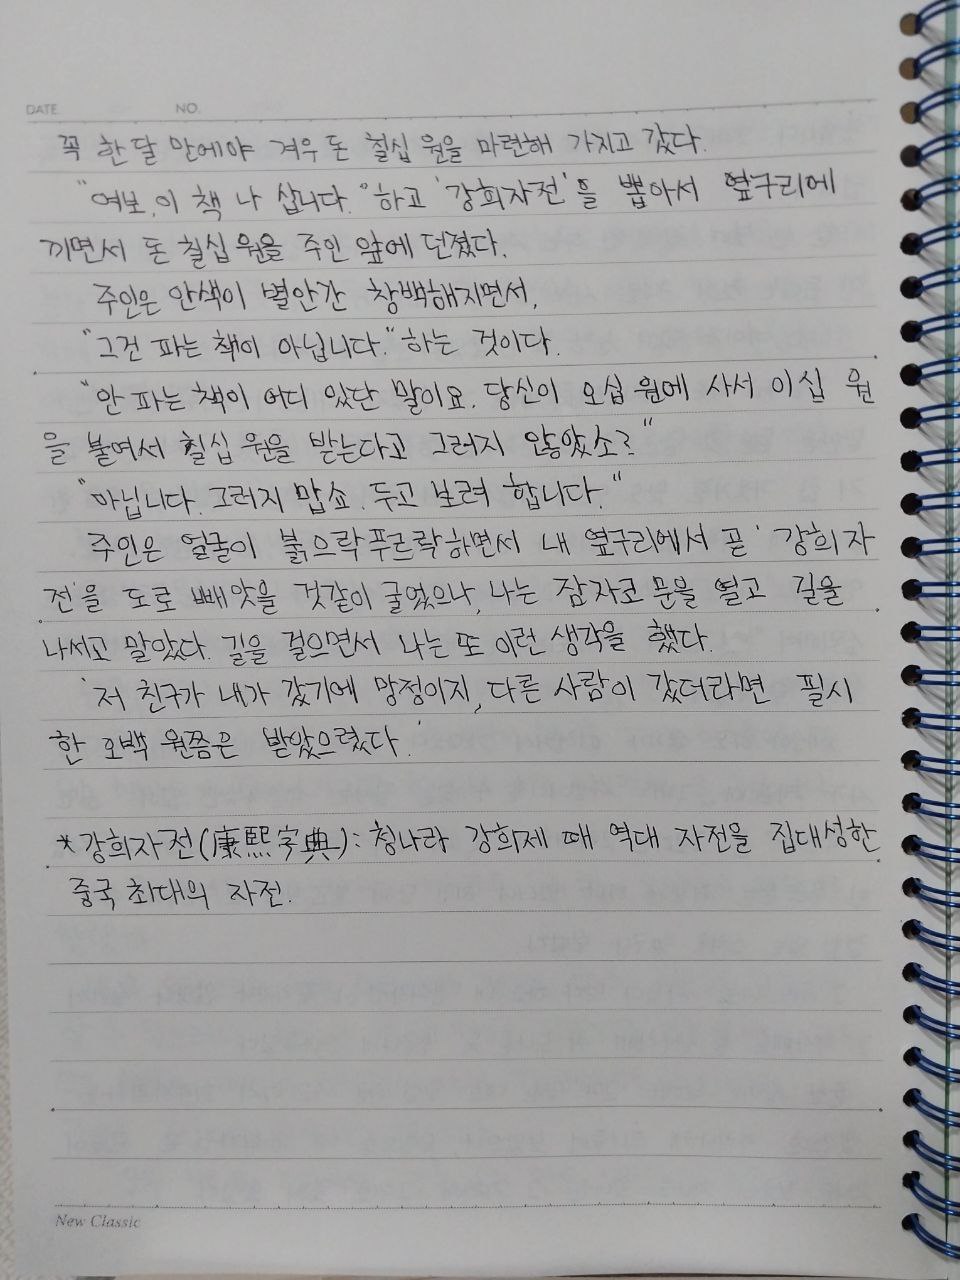 DATE NO.
꼭 한 달 만에야 겨우 돈 칠십 원을 마련해 가지고 갔다.
"여보, 이 책 나 삽니다."하고 '강희자전'을 뽑아서 옆구리에
끼면서 돈 칠십 원을 주인 앞에 던졌다.
주인은 안색이 별안간 창백해지면서,
"그건 파는 책이 아닙니다."하는 것이다.
"안 파는 책이 어디 있단 말이요. 당신이 오십 원에 사서 이십 원
을 붙여서 칠십 원을 받는다고 그러지 않았소?"
"아닙니다. 그러지 맙쇼. 두고 보려 합니다."
주인은 얼굴이 붉으락푸르락하면서 내 옆구리에서 곧 '강희자
전'을 도로 빼앗을 것같이 굴었으나, 나는 잠자코 문을 열고 길을
나서고 말았다. 길을 걸으면서 나는 또 이런 생각을 했다.
'저 친구가 내가 갔기에 망정이지, 다른 사람이 갔더라면 필시
한 오백 원쯤은 받았으렸다.'
*강희자전(康熙字典): 청나라 강희제 때 역대 자전을 집대성한
중국 최대의 자전.
New Classic